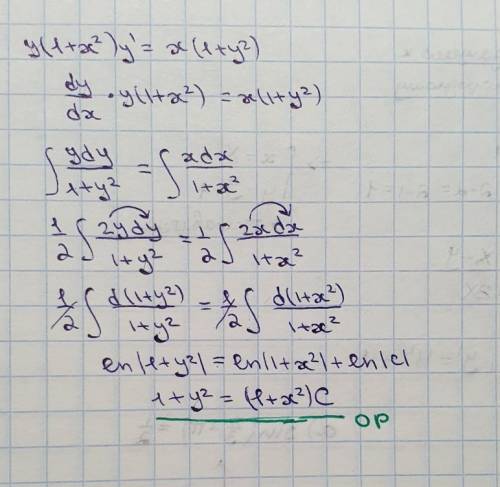 y(1+x²)y' = x(1+y²)
dy/dx · y(1+x²) = x(1+y²)
∫ ydy/1+y² = ∫ xdx/1+x²
1/2 ∫ 2ydy/1+y² = 1/2 ∫ 2xdx/1+x²
1/2 ∫ d(1+y²)/1+y² = 1/2 ∫ d(1+x²)/1+x²
ln|1+y²| = ln|1+x²| + ln|c|
1+y² = (1+x²)C
ОР